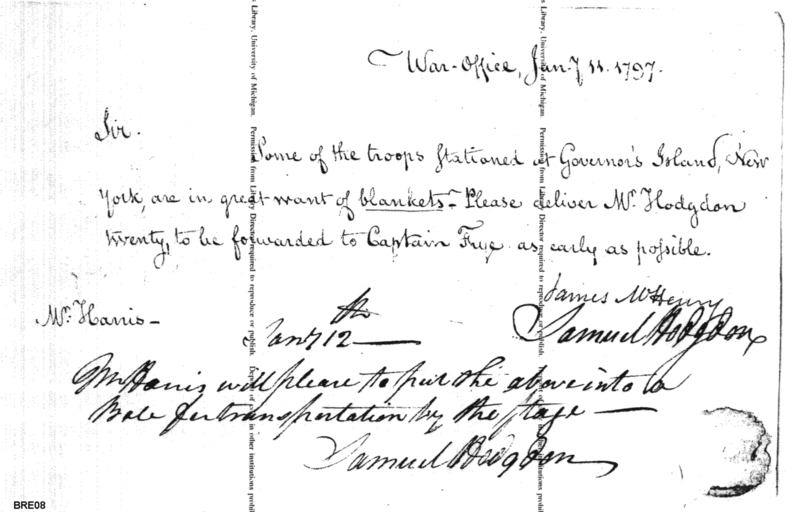 War-Office, Jany 11. 1797.
Sir.
Some of the troops stationed at Governor's Island, New
York, are in great want of blankets– Please deliver Mr. Hodgdon
twenty, to be forwarded to Captain Frye as early as possible.
James McHenry
Mr. Harris– Samuel Hodgdon
Jany 12th
Mr Harris will please to put the above into a
Bale for transportation by the stage —
Samuel Hodgdon
s Library, University of Michigan. Permission from Library Director required to reproduce or publish.
in other institutions prohib
s Library, University of Michigan. Permission from Library Director required to reproduce or publish.
in other institutions prohibi
BRE08